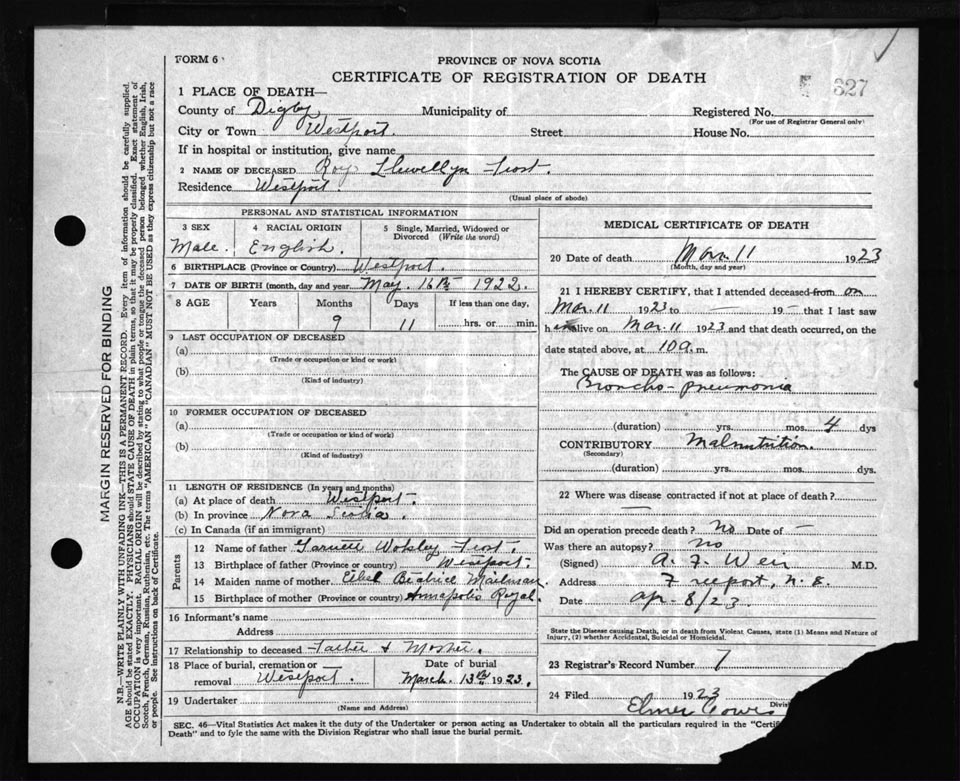 FORM 6
PROVINCE OF NOVA SCOTIA
CERTIFICATE OF REGISTRATION OF DEATH
627
1 PLACE OF DEATH—
County of Digby Municipality of Registered No.
(For use of Registrar General only)
City or Town Westport. Street House No.
If in hospital or institution, give name
2 NAME OF DECEASED Roy Llewellyn Frost.
Residence Westport.
(Usual place of abode)
PERSONAL AND STATISTICAL INFORMATION
3 SEX 4 RACIAL ORIGIN 5 Single, Married, Widowed or Divorced (Write the word)
Male. English.
6 BIRTHPLACE (Province or Country) Westport.
7 DATE OF BIRTH (month, day and year May. 16th 1922.
8 AGE Years Months Days If less than one day,
9 11 hrs. or min.
9 LAST OCCUPATION OF DECEASED
(a)
(Trade or occupation or kind or work)
(b)
(Kind of industry)
10 FORMER OCCUPATION OF DECEASED
(a)
(Trade or occupation or kind of work)
(b)
(Kind of industry)
11 LENGTH OF RESIDENCE (In years and months)
(a) At place of death Westport.
(b) In province Nova Scotia.
(c) In Canada (if an immigrant)
Parents
12 Name of father Garnett Wolsley Frost.
13 Birthplace of father (Province or country) Westport.
14 Maiden name of mother Ethel Beatrice Mailman.
15 Birthplace of mother (Province or country) Annapolis Royal.
16 Informant's name
Address
17 Relationship to deceased Father & Mother.
18 Place of burial, cremation or removal Westport. Date of burial March. 13th 1923.
19 Undertaker
(Name and Address)
MEDICAL CERTIFICATE OF DEATH
20 Date of death Mar. 11 1923
(Month, day and year)
21 I HEREBY CERTIFY, that I attended deceased from on
Mar. 11 1923 to — 19 — that I last saw
h im alive on Mar. 11 1923 and that death occurred, on the
date stated above, at 10 a. m.
The CAUSE OF DEATH was as follows:
Broncho-pneumonia
(duration) yrs. mos. 4 dys
CONTRIBUTORY Malnutrition.
(Secondary)
(duration) yrs. mos. dys.
22 Where was disease contracted if not at place of death?
Did an operation precede death? No Date of —
Was there an autopsy? No
(Signed) A. F. Weir M.D.
Address Freeport, N. S.
Date Ap. 8/23.
State the Disease causing Death, or in death from Violent Causes, state (1) Means and Nature of
Injury, (2) whether Accidental, Suicidal or Homicidal.
23 Registrar's Record Number 7
24 Filed 1923
Elmer
SEC. 46—Vital Statistics Act makes it the duty of the Undertaker or person acting as Undertaker to obtain all the particulars required in the "Certif
Death" and to fyle the same with the Division Registrar who shall issue the burial permit.
MARGIN RESERVED FOR BINDING
N.B.—WRITE PLAINLY WITH UNFADING INK—THIS IS A PERMANENT RECORD. Every item of information should be carefully supplied.
AGE should be stated EXACTLY. PHYSICIANS should STATE CAUSE OF DEATH in plain terms, so that it may be properly classified. Exact statement of
OCCUPATION is very important. RACIAL ORIGIN will be described by stating to what people or tongue the deceased person belonged whether English, Irish,
Scotch, French, German, Russian, Ruthenian, etc. The terms "AMERICAN" OR "CANADIAN" MUST NOT BE USED as they express citizenship but not a race
or people. See instructions on back of Certificate.